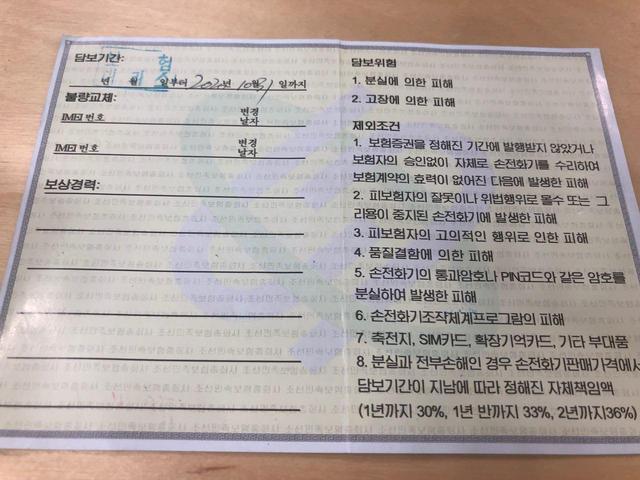 담보기간:
년 월 일부터 202 년 10월 31 일까지
불량교체:
IMEI 번호
변경
날자
IMEI 번호
변경
날자
보상경력:
담보위험
1. 분실에 의한 피해
2. 고장에 의한 피해
제외조건
1. 보험증권을 정해진 기간에 발행받지 않았거나
보험자의 승인없이 자체로 손전화기를 수리하여
보험계약의 효력이 없어진 다음에 발생한 피해
2. 피보험자의 잘못이나 위법행위로 몰수 또는 그
리용이 중지된 손전화기에 발생한 피해
3. 피보험자의 고의적인 행위로 인한 피해
4. 품질결함에 의한 피해
5. 손전화기의 통과암호나 PIN코드와 같은 암호를
분실하여 발생한 피해
6. 손전화기조작체계프로그람의 피해
7. 축전지, SIM카드, 확장기억카드, 기타 부대품
8. 분실과 전부손해인 경우 손전화기판매가격에서
담보기간이 지남에 따라 정해진 자체책임액
(1년까지 30%, 1년 반까지 33%, 2년까지36%)
조선민족보험총회사